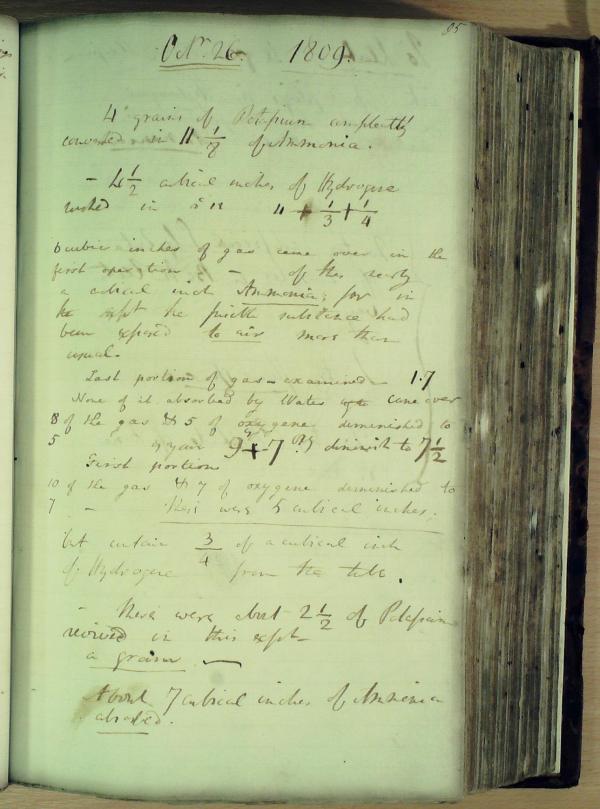 95
Octr. 26. 1809.
4 grains of Potassium completely
converted in 11 1/2 of Ammonia.
- 4 1/2 cubical inches of Hydrogene
in 11 + 1/3 + 1/4
6 cubic inches of gas came over in the
first operation - of this nearly
a cubical inch Ammonia; for in
he expt the fusible substance had
been exposed to air more than
usual.
Last portion of gas - examined - 1.7
None of it absorbed by Water came over
8 of the gas & 5 of oxygene diminished to
5 again 9 + 7 diminish to 7 1/2
First portion
10 of the gas & 7 of oxygene diminished to
7 - there were 5 cubical inches;
but contain 3/4 of a cubical inch
of Hydrogene from the tube.
- There were abot 2 1/2 of Potassium
revived in this expt-
a grain -
About 7 cubical inches of Ammonia
absorbed.